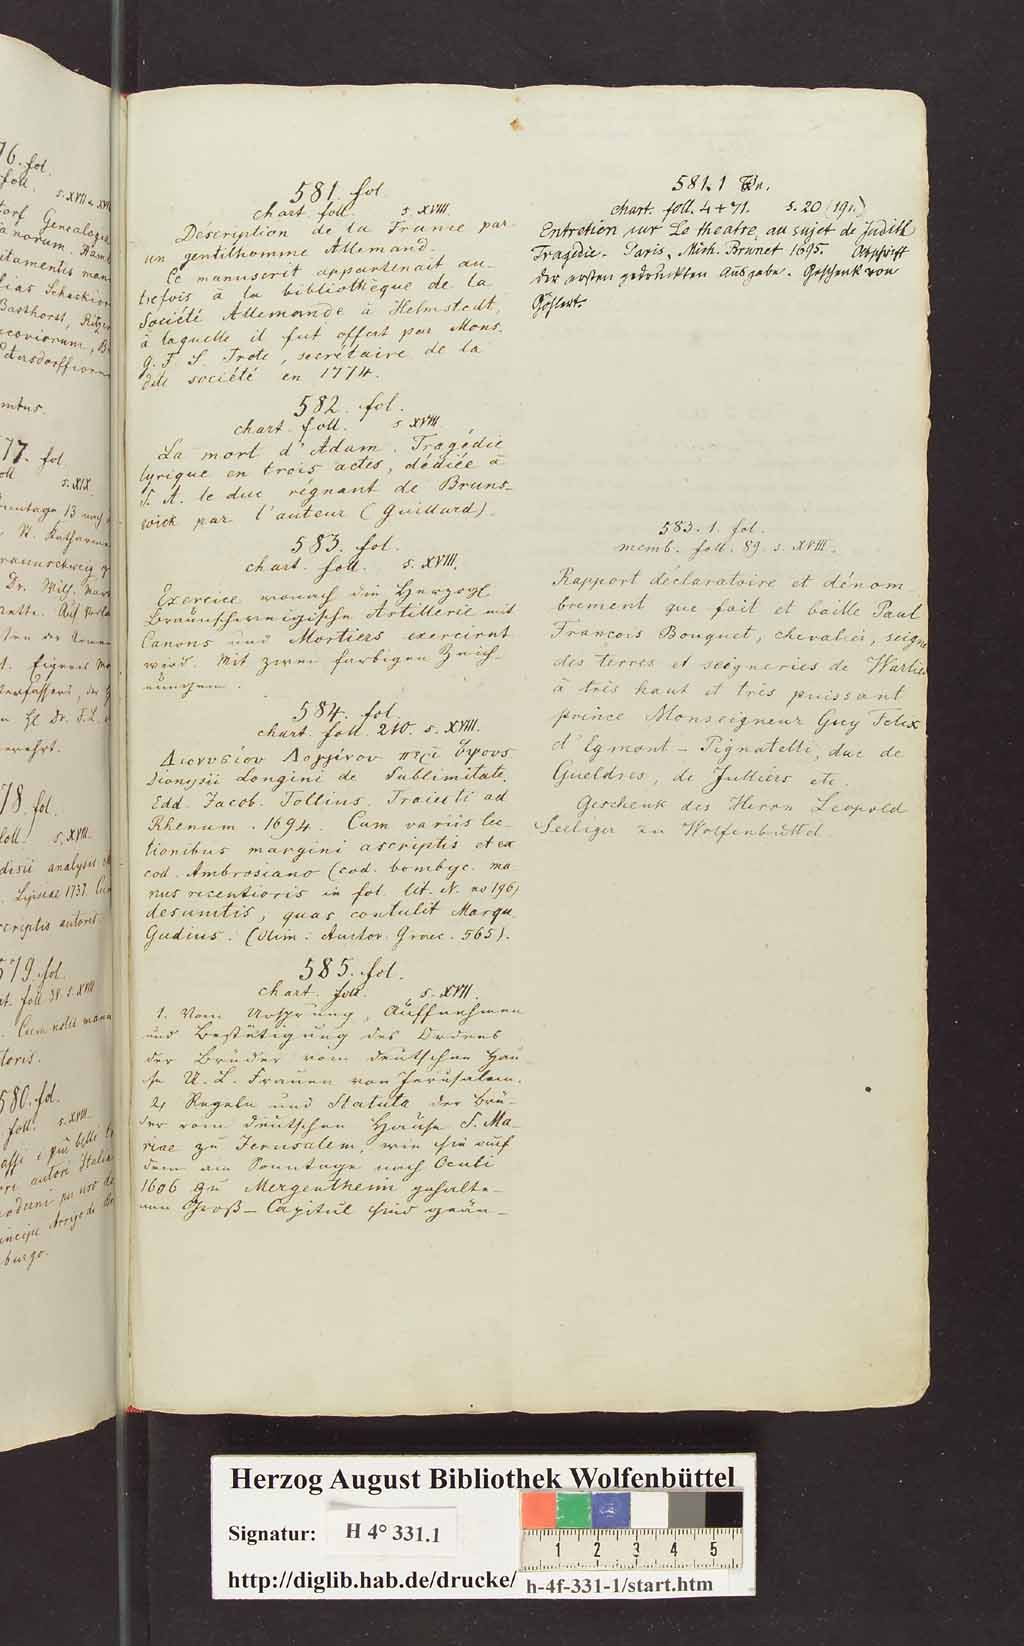 76. fol.
foll. s. XVII
Genealogi
norum.
itamentis
Schackio
Barthorst,
coviorum,
Petersdorffioru
mtus.
77. fol
foll s. XIX.
13 nach
St. Katharinen
Braunschweig
Dr. Wilh.
Dr. F. L.
verehrt.
78. fol.
foll. s. XVIII.
disii analysis
Lipsiae 1737. Cum
scriptis autoris
579. fol.
foll 38. s. XVIII
Cum notis manu
toris.
580. fol.
foll. s. XVIII.
e più belli
autori Italia
moderni per uso de
principe Arrigo di
burgo.
581. fol
chart. foll. s. XVIII.
Déscription de la France par
un gentilhomme Allemand.
Ce manuscrit appartenait au-
trefois à la bibliothèque de la
Société Allemande à Helmstedt,
à laquelle il fut offert par Mons.
G. F. S. Trote, secrétaire de la
dite société en 1774.
582. fol.
chart. foll. s. XVIII
La mort d'Adam. Tragédie
lyrique en trois actes, dédiée à
S. A. le duc régnant de Bruns-
wick par l'auteur (Guillard).
583. fol.
chart. foll. s. XVIII.
Exercice wonach die Herzogl.
Braunschweigische Artillerie mit
Canons und Mortiers exercirt
wird. Mit zwei farbigen Zeich-
nungen.
584. fol.
chart. foll. 210. s. XVIII.
Διονυσίου Λογγίνου περὶ ὕψους
Dionysii Longini de Sublimitate.
Edd. Jacob. Tollius. Traiecti ad
Rhenum. 1694. Cum variis lec-
tionibus margini ascriptis et ex
cod. Ambrosiano (cod. bombyc. ma-
nus recentioris in fol. lit. N. no 196)
desumtis, quas contulit Marqu.
Gudius. (Olim: Auctor. Graec. 565).
585. fol.
chart. foll. s. XVII.
1. Vom Ursprung, Auffnehmen
und Bestätigung des Ordens
der Brüder vom deutschen Hau-
se U. L. Frauen von Jerusalem.
2, Regeln und Statuta der Brü-
der vom deutschen Hause S. Ma-
riae zu Jerusalem, wie sie auf
dem am Sonntage nach Oculi
1606 zu Mergentheim gehalte-
nen Groß-Capitul sind geän-
581.1 Nov.
chart. foll. 4+71. s. 20 (19..)
Entretien sur Le theatre, au sujet de Judith
Tragedie. Paris, Mich. Brunet 1695. Abschrift
der ersten gedruckten Ausgabe. Geschenk von
Göhlert.
583. 1. fol.
memb. foll. 89. s. XVIII.
Rapport déclaratoire et dénom
brement que fait et baille Paul
Francois Bouquet, chevalier, seigne
des terres et seigneries de Wartie
à très haut et très puissant
prince Monseigneur Guy Felix
d'Egmont-Pignatelli, duc de
Gueldres, de Julliers etc.
Geschenk des Herrn Leopold
Seeliger zu Wolfenbüttel.
Herzog August Bibliothek Wolfenbüttel
Signatur: H 4° 331.1
1 2 3 4 5
http://diglib.hab.de/drucke/ h-4f-331-1/start.htm